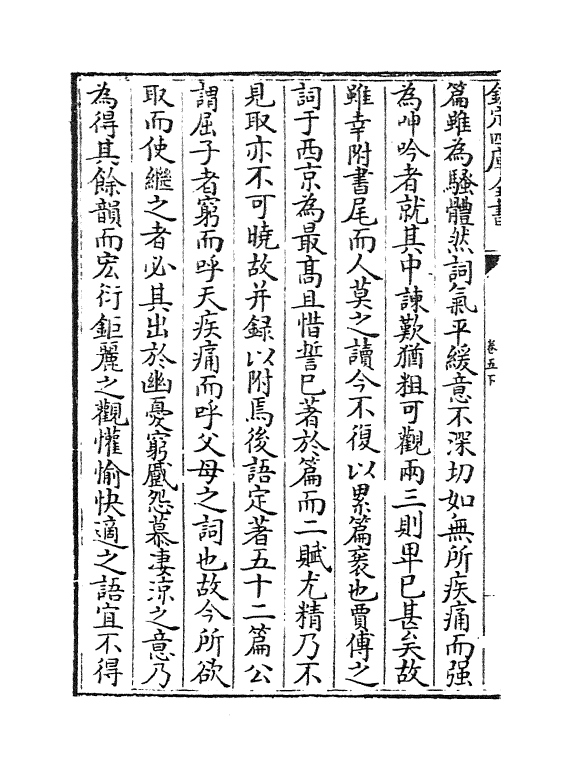 欽定四庫全書
卷五下
篇雖為騷體然詞氣平緩意不深切如無所疾痛而强
為呻吟者就其中諫歎猶粗可觀兩三則卑已甚矣故
雖幸附書尾而人莫之讀今不復以累篇袠也賈傅之
詞于西京為最髙且惜誓已著於篇而二賦尤精乃不
見取亦不可曉故并録以附焉後語定著五十二篇公
謂屈子者窮而呼天疾痛而呼父母之詞也故今所欲
取而使繼之者必其出於幽憂窮蹙怨慕凄涼之意乃
為得其餘韻而宏衍鉅麗之觀懽愉快適之語宜不得